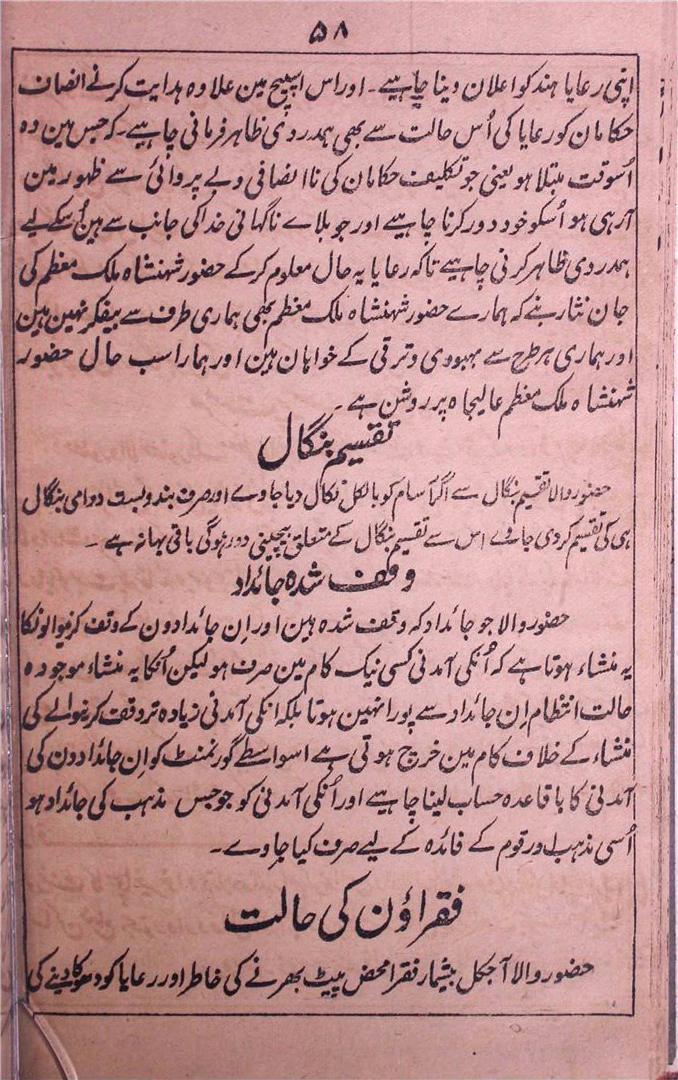 ۵۸
اپنی رعایا ہند کو اعلان دینا چاہیے۔ اور اس اسپیچ مین علاوہ ہدایت کرنے انصاف
حکامان کو رعایا کی اُس حالت سے بھی ہمدردی ظاہر فرمانی چاہیے۔ کہ جس مین وہ
اُسوقت مبتلا ہو یعنی جو تکلیف حکامان کی نا انصافی و بے پروائی سے ظہور مین
آرہی ہو اُسکو خود دور کرنا چاہیے اور جو بلاے ناگہانی خدا کی جانب سے ہین اُسکے لیے
ہمدردی ظاہر کرنی چاہیے تاکہ رعایا یہ حال معلوم کرکے حضور شہنشاہ ملک معظم کی
جان نثار بنے کہ ہمارے حضور شہنشاہ ملک معظم بھی ہماری طرف سے بیفکر نہین ہین
اور ہماری ہر طرح سے بہبودی و ترقی کے خواہان ہین اور ہمارا سب حال حضور
شہنشاہ ملک معظم عالیجاہ پر روشن ہے۔
تقسیم بنگال
حضور والا تقسیم بنگال سے اگر آسام کو بالکل نکال دیا جاوے اور صرف بندوبست دوامی بنگال
ہی کی تقسیم کردی جاوے اس سے تقسیم بنگال کے متعلق بیچینی دور ہوگی باقی بہانہ ہے۔
وقف شدہ جائداد
حضور والا جو جائداد کہ وقف شدہ ہین اور اِن جائدادون کے وقف کرنیوالونکا
یہ منشاء ہوتا ہے کہ اُنکی آمدنی کسی نیک کام مین صرف ہو لیکن اُنکا یہ منشاء موجودہ
حالت انتظام اِن جائداد سے پورا نہین ہوتا بلکہ انکی آمدنی زیادہ تر وقف کرنیوالے کی
منشاء کے خلاف کام مین خرچ ہوتی ہے اسواسطے گورنمنٹ کو اِن جائدادون کی
آمدنی کا باقاعدہ حساب لینا چاہیے اور اُنکی آمدنی کو جو جس مذہب کی جائداد ہو
اُسی مذہب اور قوم کے فائدہ کے لیے صرف کیا جاوے۔
فقراؤن کی حالت
حضور والا آجکل بیشمار فقرا محض پیٹ بھرنے کی خاطر اور رعایا کو دھوکا دینے کی